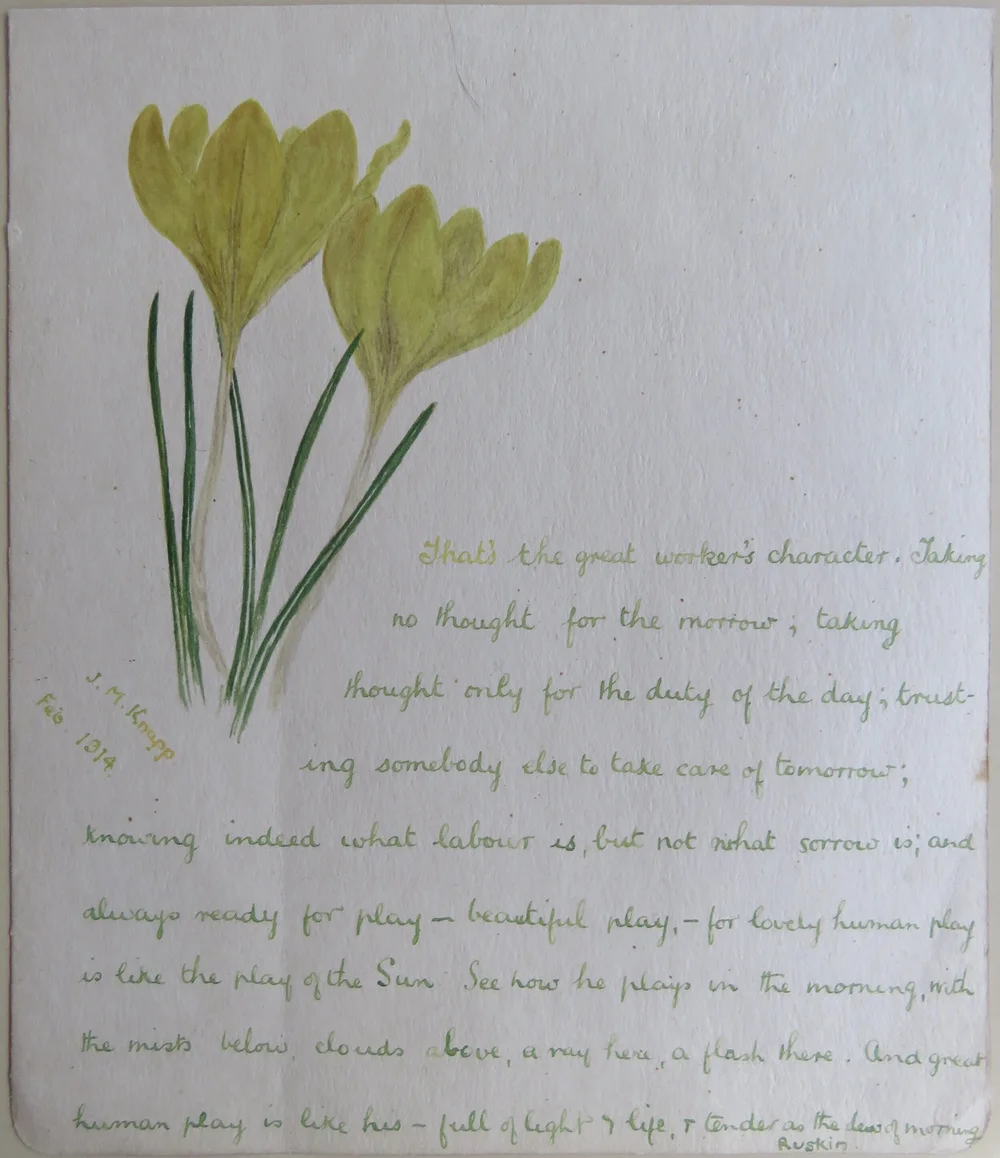 That's the great worker's character. Taking
no thought for the morrow; taking
thought only for the duty of the day; trust-
ing somebody else to take care of tomorrow;
knowing indeed what labour is, but not what sorrow is; and
always ready for play — beautiful play, — for lovely human play
is like the play of the Sun See how he plays in the morning, with
the mists below, clouds above, a ray here, a flash there. And great
human play is like his — full of light & life, & tender as the dew of morning
Ruskin.
J. M. Knapp
Feb. 1914.